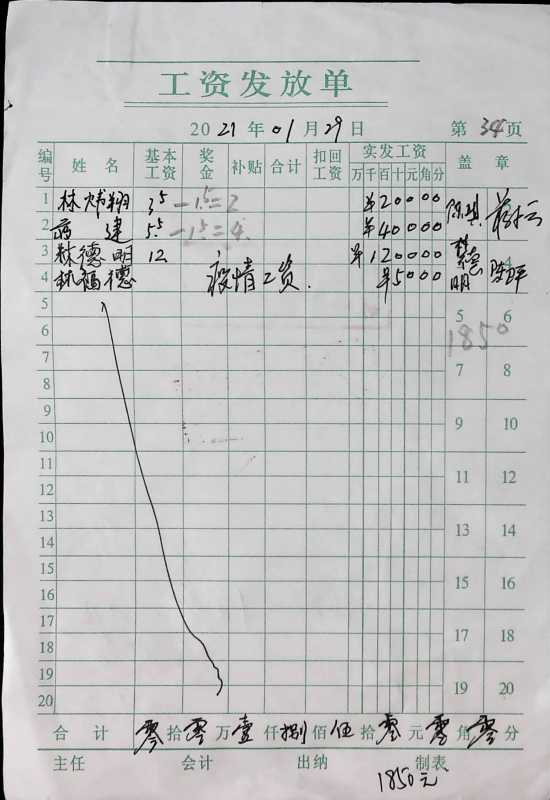 工资发放单
2021年01月29日 第34页
编号 姓名 基本工资 奖金 补贴 合计 扣回工资 实发工资 盖章
万 千 百 十 元 角 分
1 林 翔 3.5 -1.5=2 ¥20000
2 蒋建 5.5 -1.5=4 ¥40000
3 林德明 12 ¥120000 林德明
4 福德 疫情工资. ¥5000 4
5 5 6
1850
6
7 7 8
8
9 9 10
10
11 11 12
12
13 13 14
14
15 15 16
16
17 17 18
18
19 19 20
20
合计 零拾零万壹仟捌佰伍拾零元零角零分
主任 会计 出纳 制表
1850元